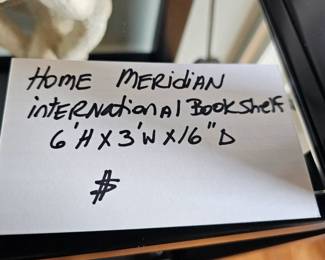 HOME MERIDIAN
inTERNATionAl BookShelf
6'H X 3'W X 16"D
$